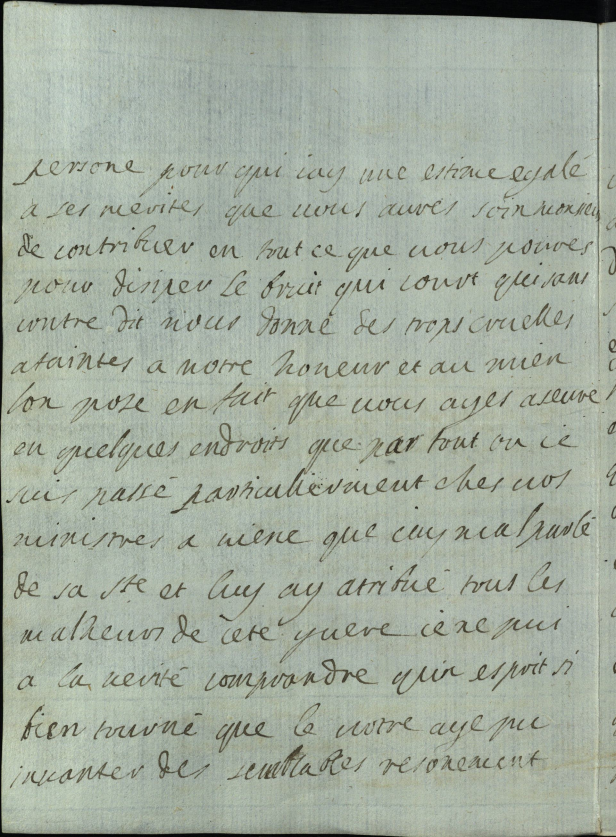 persone pour qui iay une estime egalé
a ses merites que vous aures soin monsieur
de contribuer en tout ce que vous pouves
pour disiper le bruit qui court qui sans
contre dit nous donne des trops cruelles
ataintes a notre honeur et au mien
lon pose en fait que vous ayes aseuré
en quelques endroits que par tout ou ie
suis passé particulierment ches nos
ministres a viene que iay mal parlé
de sa ste et luy ay atribué tous les
malheurs de cete guere ie ne puis
a la verité comprandre quun esprit si
bien tourné que le votre aye pu
invanter des semblables resonement